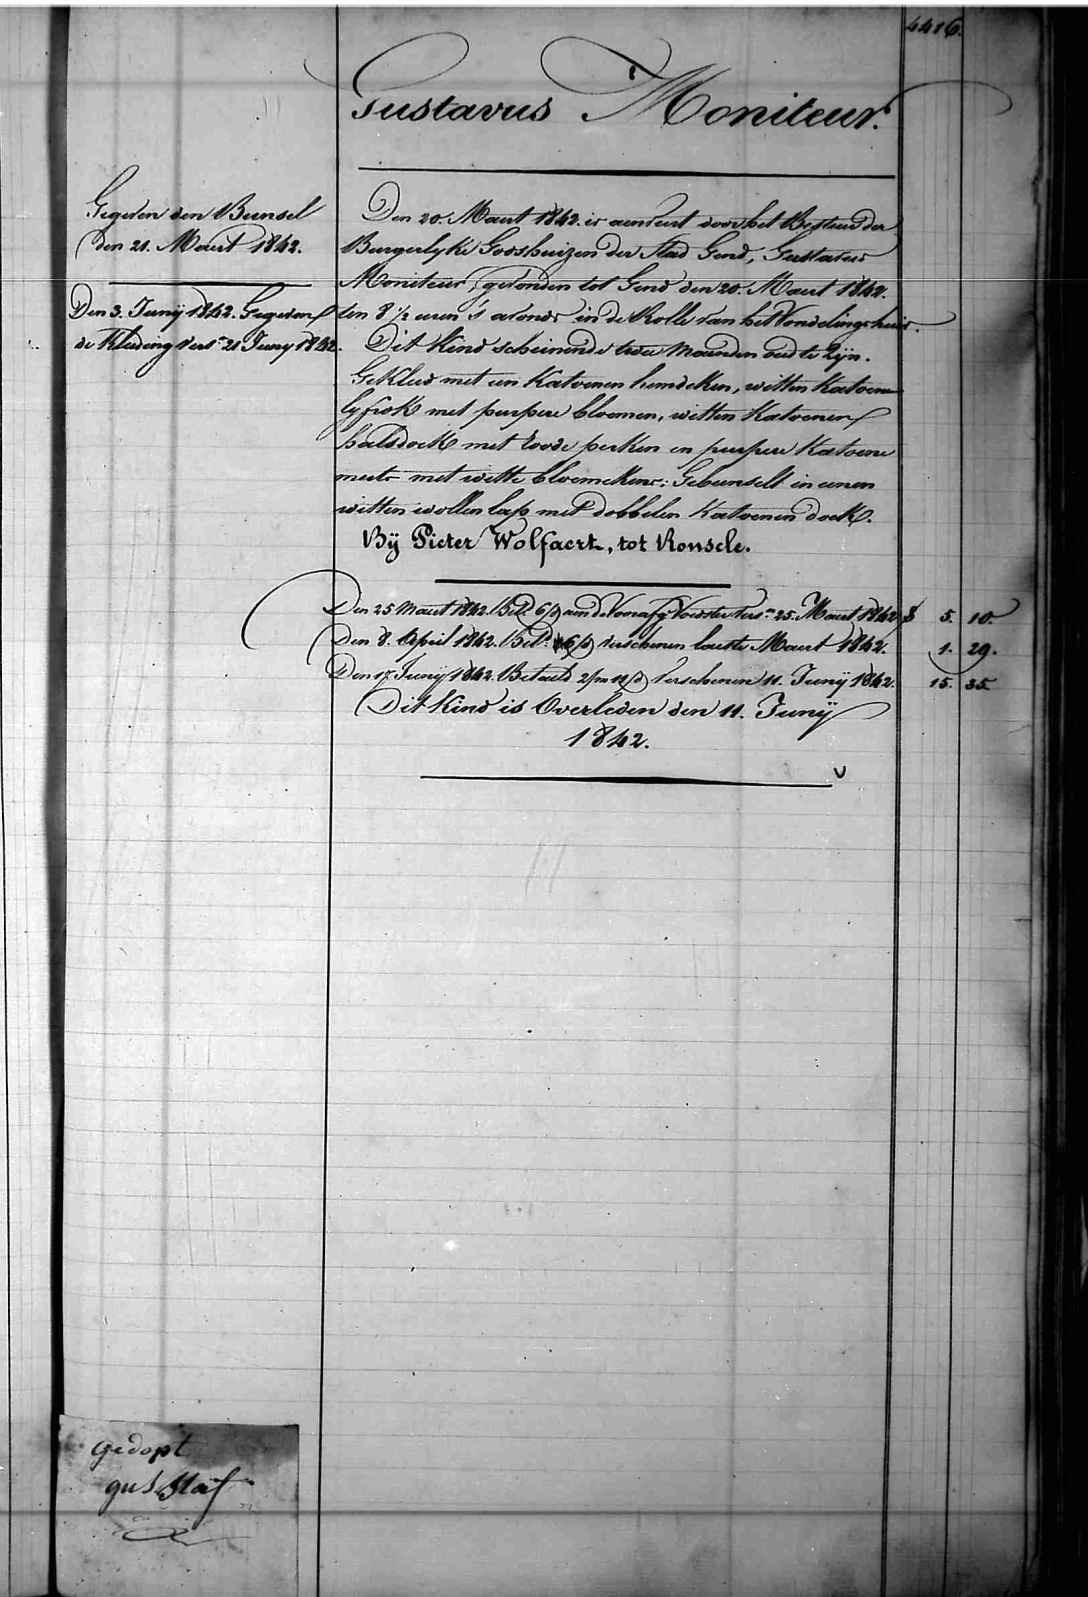 4416.
Gustavus Moniteur.
Gegeven den Bunsel
den 21. Maert 1842.
Den 3. Junij 1842. Gegeven
de Kleeding vers.n 21 Juny 1842.
Den 20. Maert 1842. is aenveirt door het Bestuer der
Burgerlyke Godshuizen der Stad Gend, Gustavus
Moniteur, gevonden tot Gend den 20. Maert 1842.
ten 8 1/2 uren 's avonds in de Rolle van het Vondelingshuis.
Dit Kind scheinende twee Maenden oud te Zijn.
Gekleed met een Katoenen hemdeken, witten Katoenen
lyfrok met purpere bloemen, witten Katoenen
halsdoek met roode perken en purpere Katoene
muts met witte bloemekens: Gebunselt in eenen
witten wollen lap met dobbelen Katoenen doek.
Bij Pieter Wolfaert, tot Ronsele.
Den 25 Maert 1842. Bet. 6/d aen de Voedster vers.n 25. Maert 1842 5. 10.
Den 8. April 1842. Bet. 6/d verschenen laeste Maert 1842. 1. 29.
Den 17 Junij 1842. Betaeld 2/m 11/d verschenen 11. Junij 1842. 15. 35.
Dit Kind is Overleden den 11. Junij
1842.
v
gedopt
gustaf